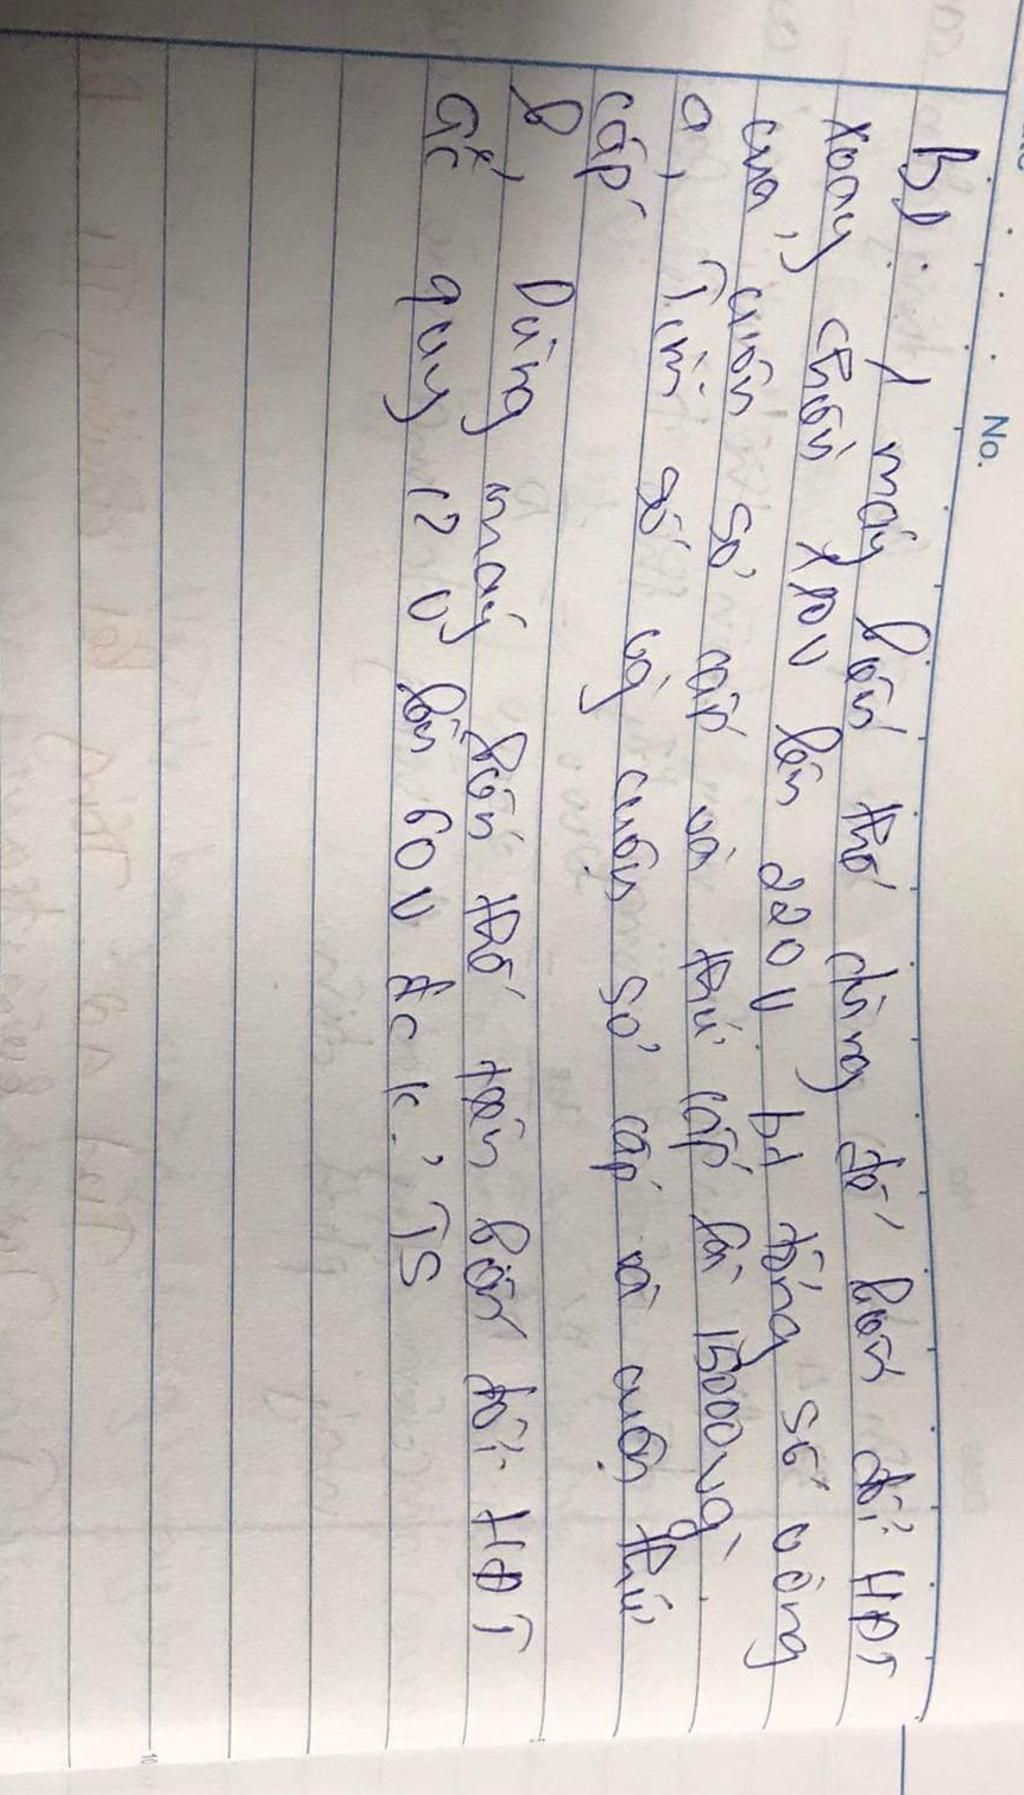 No.
B1. 1 máy biến thế dùng để biến đổi HĐT
xoay chiều 110V lên 220V. bt tổng số vòng
của cuộn sơ cấp và thứ cấp là 15000 vg.
a, Tìm số vg cuộn sơ cấp và cuộn thứ
cấp
b, Dùng máy biến thế trên biến đổi HĐT
quy 12 V lên 60V đc k? TS